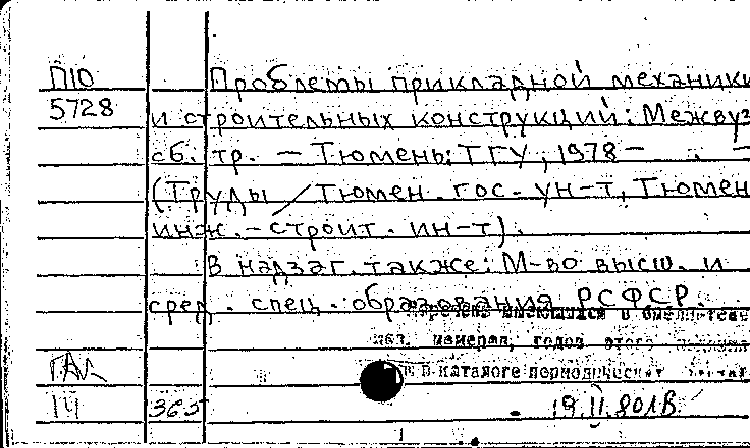 П10 Проблемы прикладной механики
5728 и строительных конструкций: Межвуз
сб. тр. — Тюмень: ТГУ, 1978 — . —
(Труды / Тюмен. гос. ун-т, Тюмен
инж.-строит. ин-т).
В надзаг. также: М-во высш. и
сред. спец. образования РСФСР.
в библиотеке
номеров, годов этого
в каталоге периодических
14 365 19.II.80